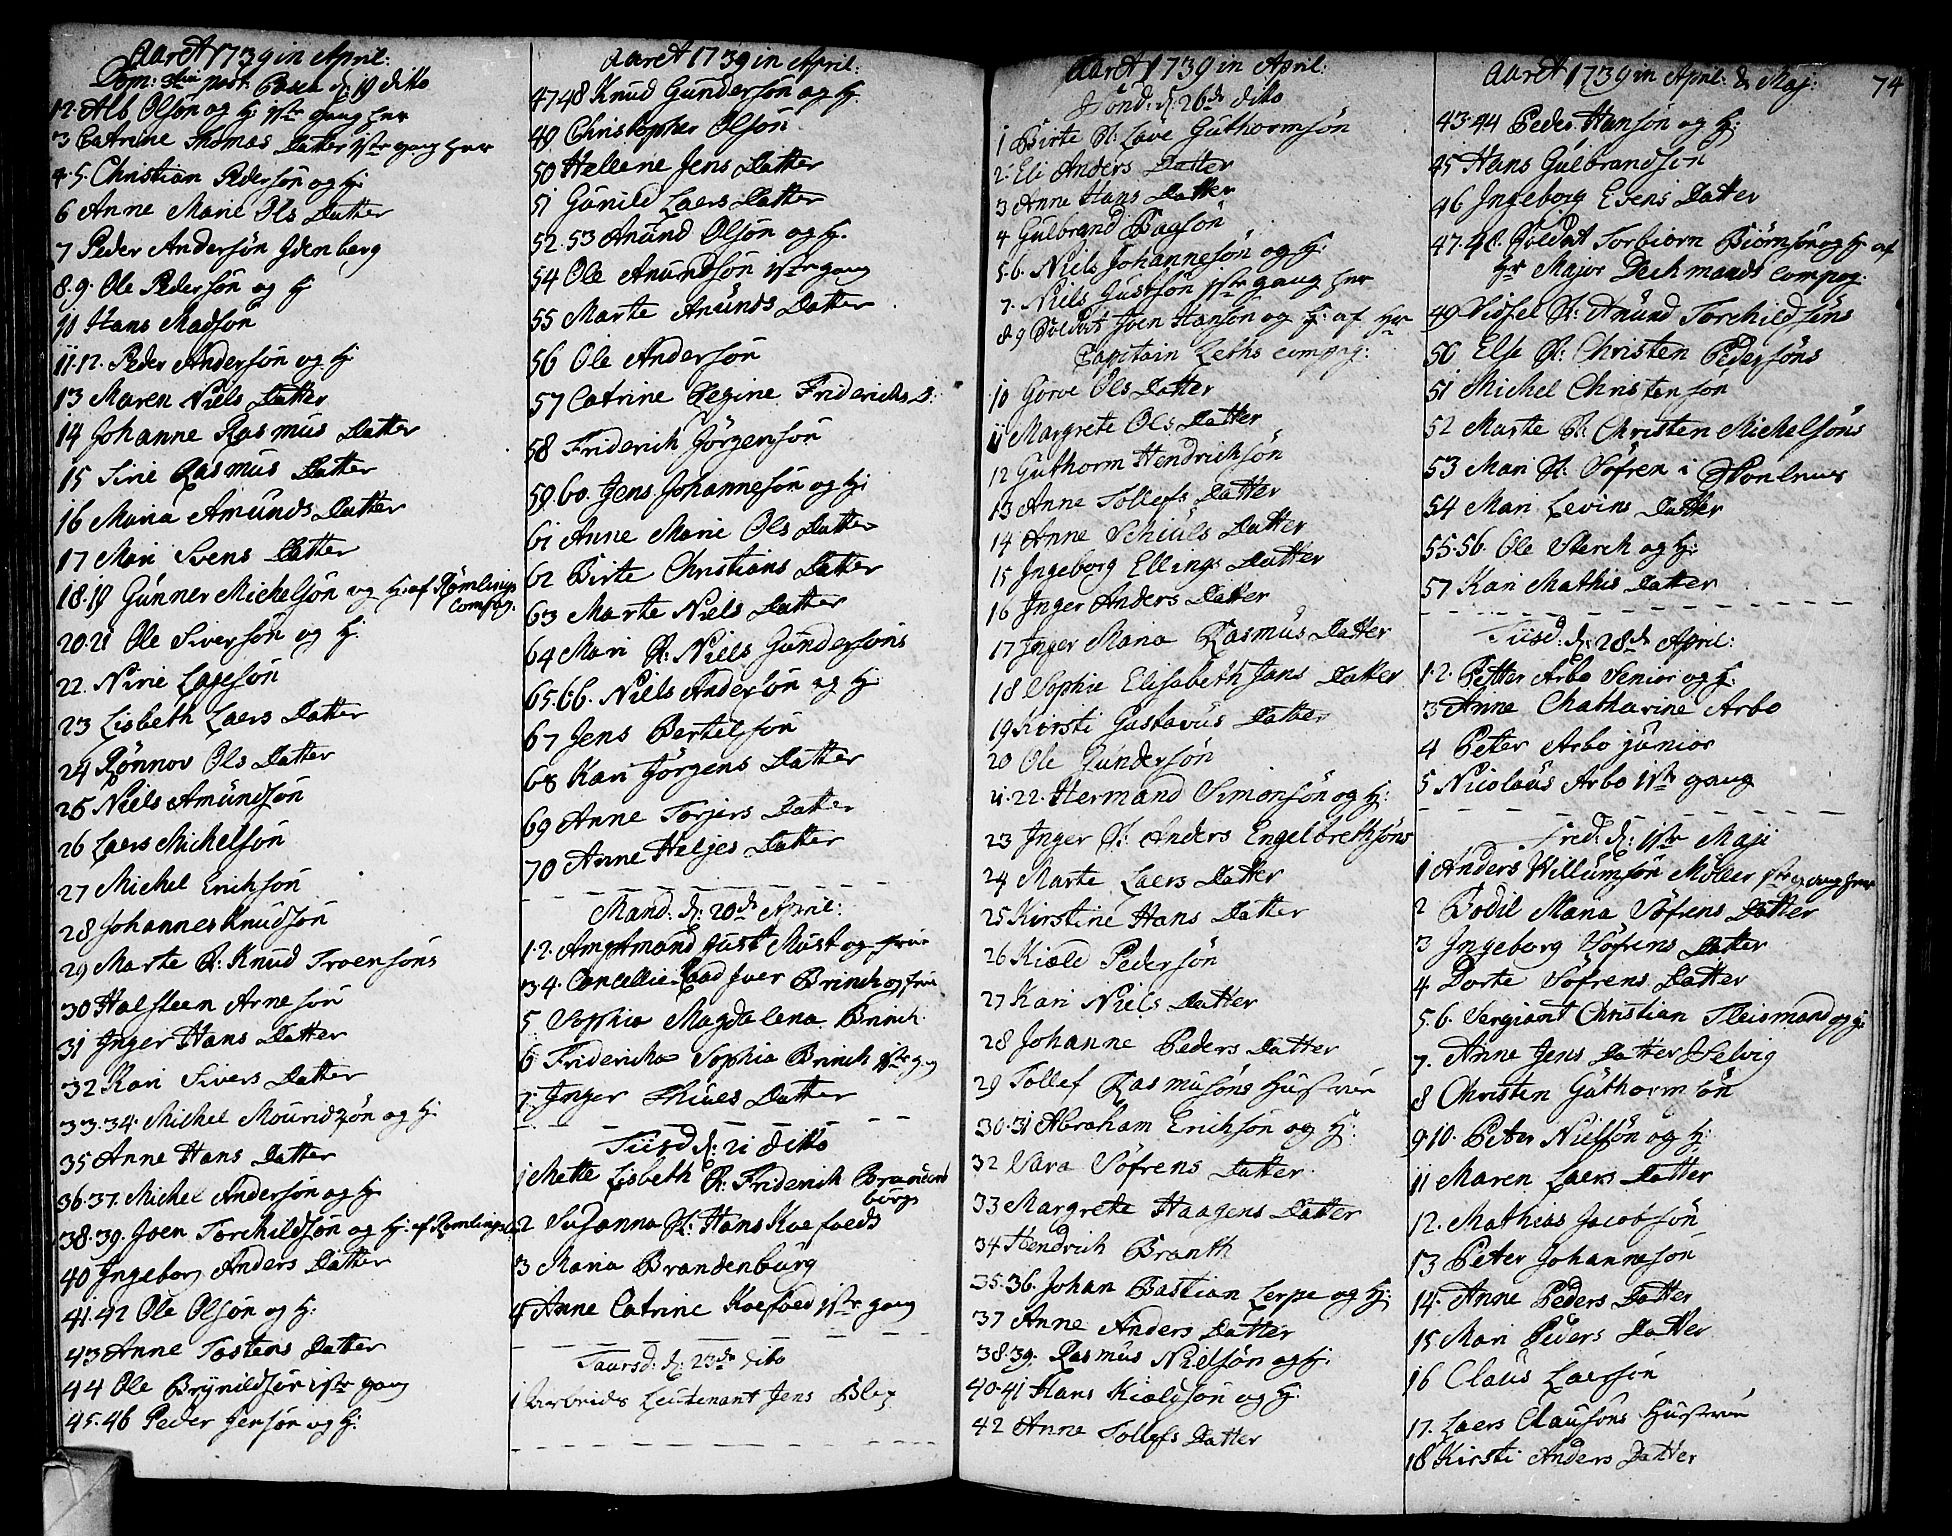 Aaret 1739 in April:
Dom: 3tia post: Pasca d: 19 ditto
1.2. Alb Olsøn og H: 1ste gang her
3 Catrine Thomas Datter 1ste gang her
4.5 Christian Pedersøn og H:
6 Anne Marie Ols Datter
7 Peder Andersøn
8.9. Ole Pedersøn og H
10 Hans Madsøn
11.12. Peder Andersøn og H:
13 Maren Niels Datter
14 Johanne Rasmus Datter
15 Sirie Rasmus Datter
16 Maria Amunds Datter
17 Mari Svens Datter
18.19 Gunner Michelsøn og H: af Rømlings
compag.
20.21 Ole Siversøn og H:
22. Nirie Lagesøn
23 Lisbeth Laers Datter
24 Rønnov Ols Datter
25 Niels Amundsøn
26 Laers Michelsøn
27 Michel Erichsøn
28 Johannes Knudsøn
29 Marte P: Knud Troensøns
30 Halsteen Arnesøn
31 Inger Hans Datter
32 Kari Sivers Datter
33.34. Michel Mouridzøn og H:
35 Anne Hans Datter
36.37. Michel Andersøn og H
38.39. Joen Torchildsøn og H: af Rømlings
40 Ingeborg Anders Datter
41.42 Ole Olsøn og H:
43 Anne Tostens Datter
44 Ole Brynildsøn 1ste gang
45.46 Peder Jensøn og H:
Aaret 1739 in April:
47.48 Knud Gundersøn og H:
49 Christopher Olsøn
50 Hellene Jens Datter
51 Gunild Laers Datter
52.53 Anund Olsøn og H.
54 Ole Anundsøn 1ste gang
55 Marte Anunds Datter
56 Ole Andersøn
57 Catrine Regine Friderichs D:
58 Friderich Jørgensøn
59.60. Jens Johannesøn og H:
61 Anne Marie Ols Datter
62 Birte Christians Datter
63 Marte Niels Datter
64 Mari P: Niels Gundersøns
65.66. Niels Andersøn og H:
67 Jens Bertelsøn
68 Kari Jørgens Datter
69 Anne Torjers Datter
70 Anne Heljes Datter
Mand: d: 20de April:
1.2. Amptmand Just Must og frue
3.4. Cancellie Raad Iver Brinch og frue
5 Sophia Magdalena Brinch
6 Fridericha Sophia Brinch 1ste g:g
7 Inger Thiues Datter
Tiisd d: 21 ditto
1 Mette Lisbeth P: Friderich Branden
burgs
2 Susanna P: Hans Koefoeds
3 Maria Brandenburg
4 Anne Catrine Koefoed 1ste gang
Taarsd: d: 23de dito
1 Leutenant Jens Blix
Aaret 1739 in April:
Sönd: d: 26de dito
1 Birte P: Lave Guthormsøn
2 Eli Anders Datter
3 Anne Hans Datter
4 Gulbrand Baasøn
5.6. Niels Johannesøn og H:
7. Niels Gustsøn 1ste gang her
8.9 Soldat Joen Hansøn og H: af Hr
Capitain Leths compag:
10 Gorve Ols Datter
11 Margrete Ols Datter
12 Guthorm Hendrichsøn
13 Anne Tollefs Datter
14 Anne Schiuls Datter
15 Ingeborg Ellings Datter
16 Inger Anders Datter
17 Inger Maria Rasmus Datter
18 Sophie Elisabeth Jans Datter
19 Kirsti Gustavus Datter
20 Ole Gundersøn
21.22. Hermand Simonsøn og H:
23 Inger P: Anders Engelbrethsøns
24 Marte Laers Datter
25 Kirstine Hans Datter
26 Kield Pedersøn
27 Kari Niels Datter
28 Johanne Peders Datter
29 Tollef Rasmusøns Hustrue
30.31 Abraham Erichsøn og H:
32 Sara Söfrens Datter
33 Margrete Haagens Datter
34 Hendrich Branth
35.36. Johan Bastian Lerpe og H:
37 Anne Anders Datter
38.39. Rasmus Nielsøn og H:
40.41 Hans Kieldsøn og H:
42 Anne Tollefs Datter
Aaret 1739 in April: & Maj: 74
43.44 Peder Hansøn og H:
45 Hans Gulbrandsøn
46 Ingeborg Evens Datter
47.48. Soldat Torbiørn Biørnsøn og H: af
Hr Major Dechmands compag
49 Sidsel P: Anund Torchildsøns
50 Else P: Christen Pedersøns
51 Michel Christensøn
52 Marte P: Christen Michelsøns
53 Mari P: Söfren i
54 Mari Levins Datter
55.56. Ole Sterch og H:
57 Kari Mathis Datter
Tiisd: d: 28de April:
1.2. Petter Arbo Senior og H:
3 Anne Chatharine Arbo
4 Peter Arbo junior
5 Nicolaus Arbo 1ste gang
Fred: d: 1ste Maji
1 Anders Willumsøn Möller 1ste gang her
2 Bodil Maria Söfrens Datter
3 Ingeborg Söfrens Datter
4 Dorte Söfrens Datter
5.6. Sergiant Christian Fleismand og H:
7. Anne Jens Datter Selvig
8 Christen Guthormsøn
9.10. Peter Nielsøn og H:
11 Maren Laers Datter
12. Mathias Jacobsøn
13 Peter Johannesøn
14. Anne Peders Datter
15 Mari Peders Datter
16 Claus Laersøn
17. Laers Clausøns Hustrue
18 Kirsti Anders Datter